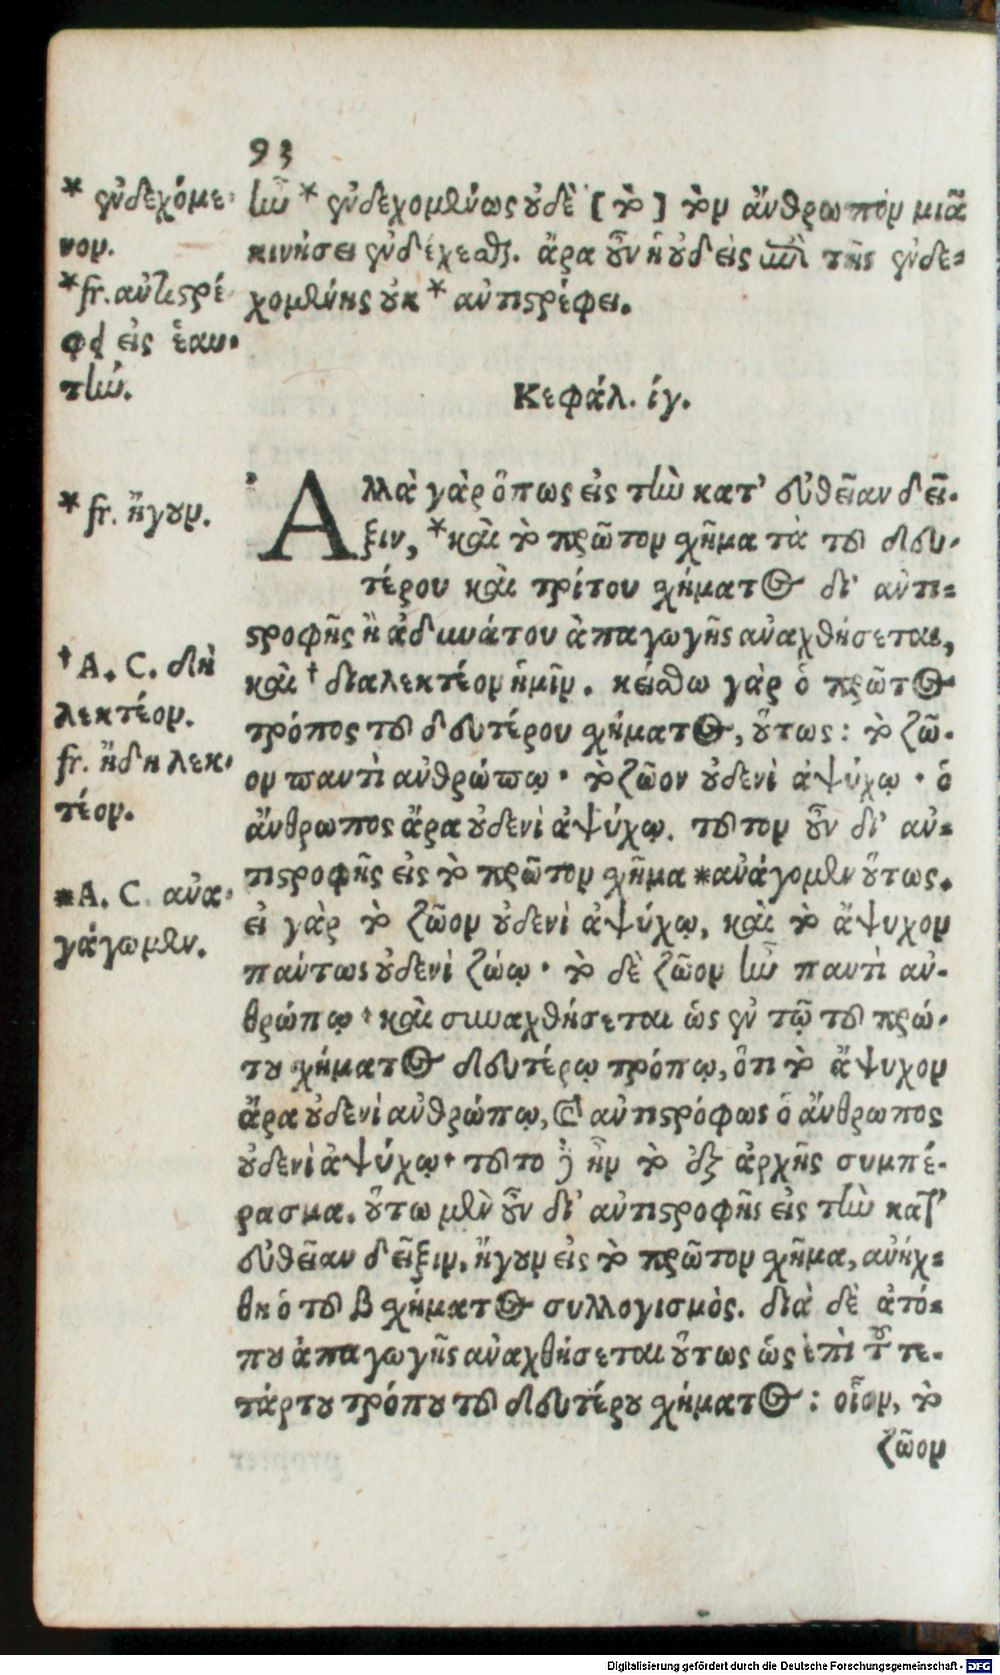 93
* ἐνδεχόμε-
νον.
*fr. ἀντιστρέ-
φει εἰς ἑαυ-
τήν.
* fr. ἤγουν.
† A. C. δὴ
λεκτέον.
fr. ἤδη λεκ-
τέον.
*A. C. ἀνα-
γάγωμεν.
ἦν * ἐνδεχομένως οὐδὲ [τὸ] τὸν ἄνθρωπον μιᾷ
κινήσει ἐνδέχεσθαι. ἄρα οὖν ἡ οὐδεὶς ἐπὶ τῆς ἐνδε-
χομένης οὐκ * ἀντιστρέφει.
Κεφάλ. ίγ.
Ἀλλὰ γὰρ ὅπως εἰς τὴν κατ' εὐθεῖαν δεῖ-
ξιν, *καὶ τὸ πρῶτον σχῆμα τὰ τοῦ δευ-
τέρου καὶ τρίτου σχήματος δι' ἀντι-
στροφῆς ἢ ἀδυνάτου ἀπαγωγῆς ἀναχθήσεται,
καὶ † διαλεκτέον ἡμῖν. κείσθω γὰρ ὁ πρῶτος
τρόπος τοῦ δευτέρου σχήματος, οὕτως: τὸ ζῶ-
ον παντὶ ἀνθρώπῳ· τὸ ζῶον οὐδενὶ ἀψύχῳ· ὁ
ἄνθρωπος ἄρα οὐδενὶ ἀψύχῳ. τοῦτον οὖν δι' ἀν-
τιστροφῆς εἰς τὸ πρῶτον σχῆμα *ἀνάγομεν οὕτως.
εἰ γὰρ τὸ ζῶον οὐδενὶ ἀψύχῳ, καὶ τὸ ἄψυχον
πάντως οὐδενὶ ζώῳ· τὸ δὲ ζῶον ἦν παντὶ ἀν-
θρώπῳ· καὶ συναχθήσεται ὡς ἐν τῷ τοῦ πρώ-
του σχήματος δευτέρῳ τρόπῳ, ὅτι τὸ ἄψυχον
ἄρα οὐδενὶ ἀνθρώπῳ, καὶ ἀντιστρόφως ὁ ἄνθρωπος
οὐδενὶ ἀψύχῳ· τοῦτο δὲ ἦν τὸ ἐξ ἀρχῆς συμπέ-
ρασμα. οὕτω μὲν οὖν δι' ἀντιστροφῆς εἰς τὴν κατ'
εὐθεῖαν δεῖξιν, ἤγουν εἰς τὸ πρῶτον σχῆμα, ἀνήχ-
θη ὁ τοῦ β σχήματος συλλογισμὸς. διὰ δὲ ἀτό-
που ἀπαγωγῆς ἀναχθήσεται οὕτως ὡς ἐπὶ τοῦ τε-
τάρτου τρόπου τοῦ δευτέρου σχήματος: οἷον, τὸ
ζῶον
Digitalisierung gefördert durch die Deutsche Forschungsgemeinschaft - DFG